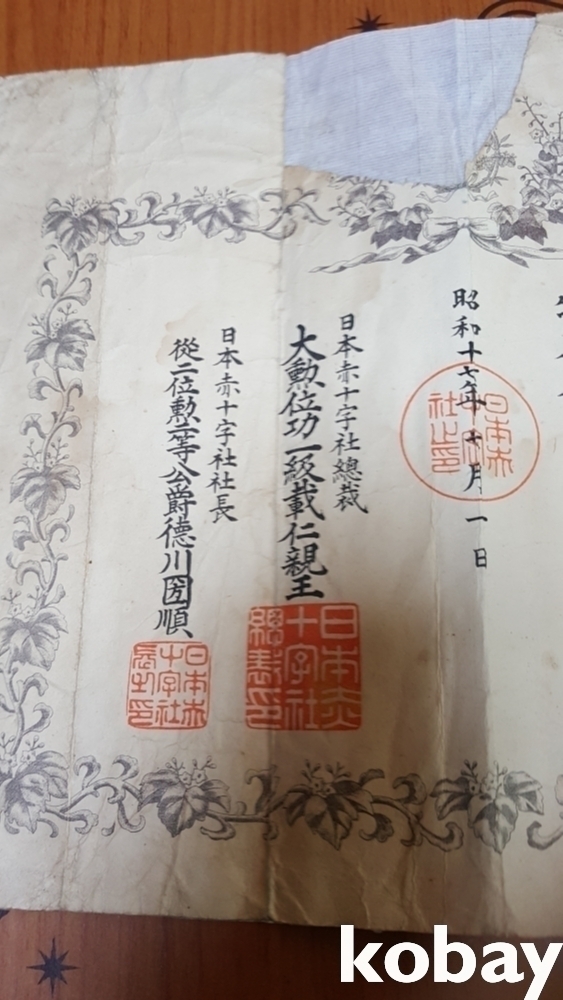 昭和十七年十月一日
日本赤十字社總裁
大勲位功一級載仁親王
日本赤十字社總裁印
日本赤十字社社長
從二位勲一等公爵德川圀順
日本赤十字社長之印
kobay